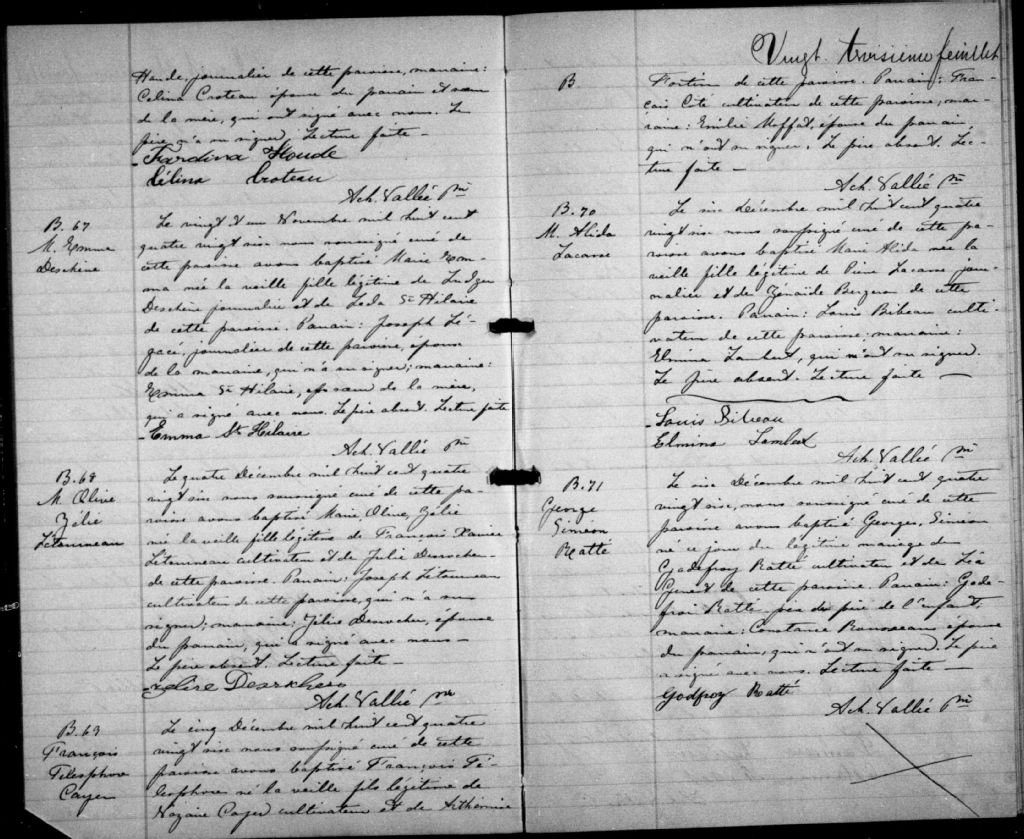 Houde, journalier de cette paroisse, marraine:
Celina Croteau épouse du parrain et sœur
de la mère, qui ont signé avec nous. Le
père n'a su signer. Lecture faite –
Célina Croteau
Ach. Vallié ptre
B. 67
M. Emma
Deschêne
Le vingt et un Novembre mil huit cent
quatre vingt six nous soussigné curé de
cette paroisse avons baptisé Marie Em-
ma née la veille fille légitime de Ludger
Deschêne journalier et de Léda St Hilaire
de cette paroisse. Parrain: Joseph Lé-
gacé, journalier de cette paroisse, époux
de la marraine, qui n'a su signer; marraine:
Emma St Hilaire, sœur de la mère,
qui a signé avec nous. Le père absent. Lecture faite
– Emma St Hilaire
Ach. Vallié ptre
B. 68
M. Olive
Zélie
Létourneau
Le quatre Décembre mil huit cent quatre
vingt six nous soussigné curé de cette pa-
roisse avons baptisé Marie, Olive, Zélie
née la veille fille légitime de François Xavier
Létourneau cultivateur et de Julie Desrochers
de cette paroisse. Parrain: Joseph Létourneau
cultivateur de cette paroisse, qui n'a su
signer; marraine: Zélie Desrochers, épouse
du parrain, qui a signé avec nous –
Le père absent. Lecture faite –
Ach. Vallié ptre
B. 69
François
Télesphore
Cayer
Le cinq Décembre mil huit cent quatre
vingt six nous soussigné curé de cette
paroisse avons baptisé François Té-
lesphore né la veille fils légitime de
Nazaire Cayer cultivateur et de Arthémise
Vingt troisième feuillet
B
Fortin de cette paroisse. Parrain: Fran-
çois Côté cultivateur de cette paroisse, mar-
raine: Emilie Moffat, épouse du parrain,
qui n'ont su signer. Le père absent. Lec-
ture faite –
Ach. Vallié ptre
B. 70
M. Alida
Lacasse
Le six Décembre mil huit cent quatre
vingt six nous soussigné curé de cette pa-
roisse avons baptisé Marie Alida née la
veille fille légitime de Pierre Lacasse jour-
nalier et de Zénaïde Bergeron de cette
paroisse. Parrain: Louis Bibeau culti-
vateur de cette paroisse; marraine:
Elmina Lambert, qui n'ont su signer.
Le père absent. Lecture faite –
– Louis Bibeau
Elmina Lambert
Ach. Vallié ptre
B. 71
George
Siméon
Ratté
Le six Décembre mil huit cent quatre
vingt six, nous soussigné curé de cette
paroisse avons baptisé Georges, Siméon
né ce jour du légitime mariage de
Godefroy Ratté cultivateur et de Léa
Genest de cette paroisse. Parrain: Gode-
froi Ratté père du père de l'enfant;
marraine: Constance Rousseau épouse
du parrain, qui n'ont su signer. Le père
a signé avec nous. Lecture faite –
Godfroy Ratté
Ach. Vallié ptre